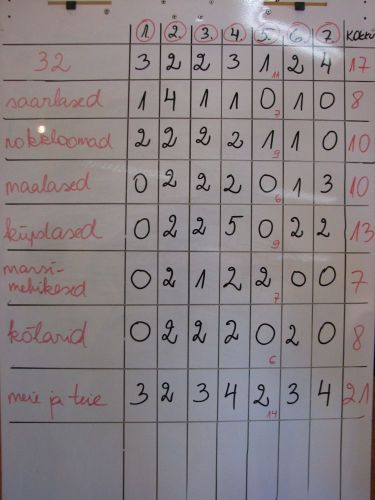 1. 2. 3. 4. 5. 6. 7. KOKKU
32 3 2 2 3 1 11 2 4 17
saarlased 1 4 1 1 0 7 1 0 8
nokkloomad 2 2 2 2 1 9 1 0 10
maalased 0 2 2 2 0 6 1 3 10
küpslased 0 2 2 5 0 9 2 2 13
marsi-
mehikesed 0 2 1 2 2 7 0 0 7
kõlarid 0 2 2 2 0 6 2 0 8
meie ja teie 3 2 3 4 2 14 3 4 21